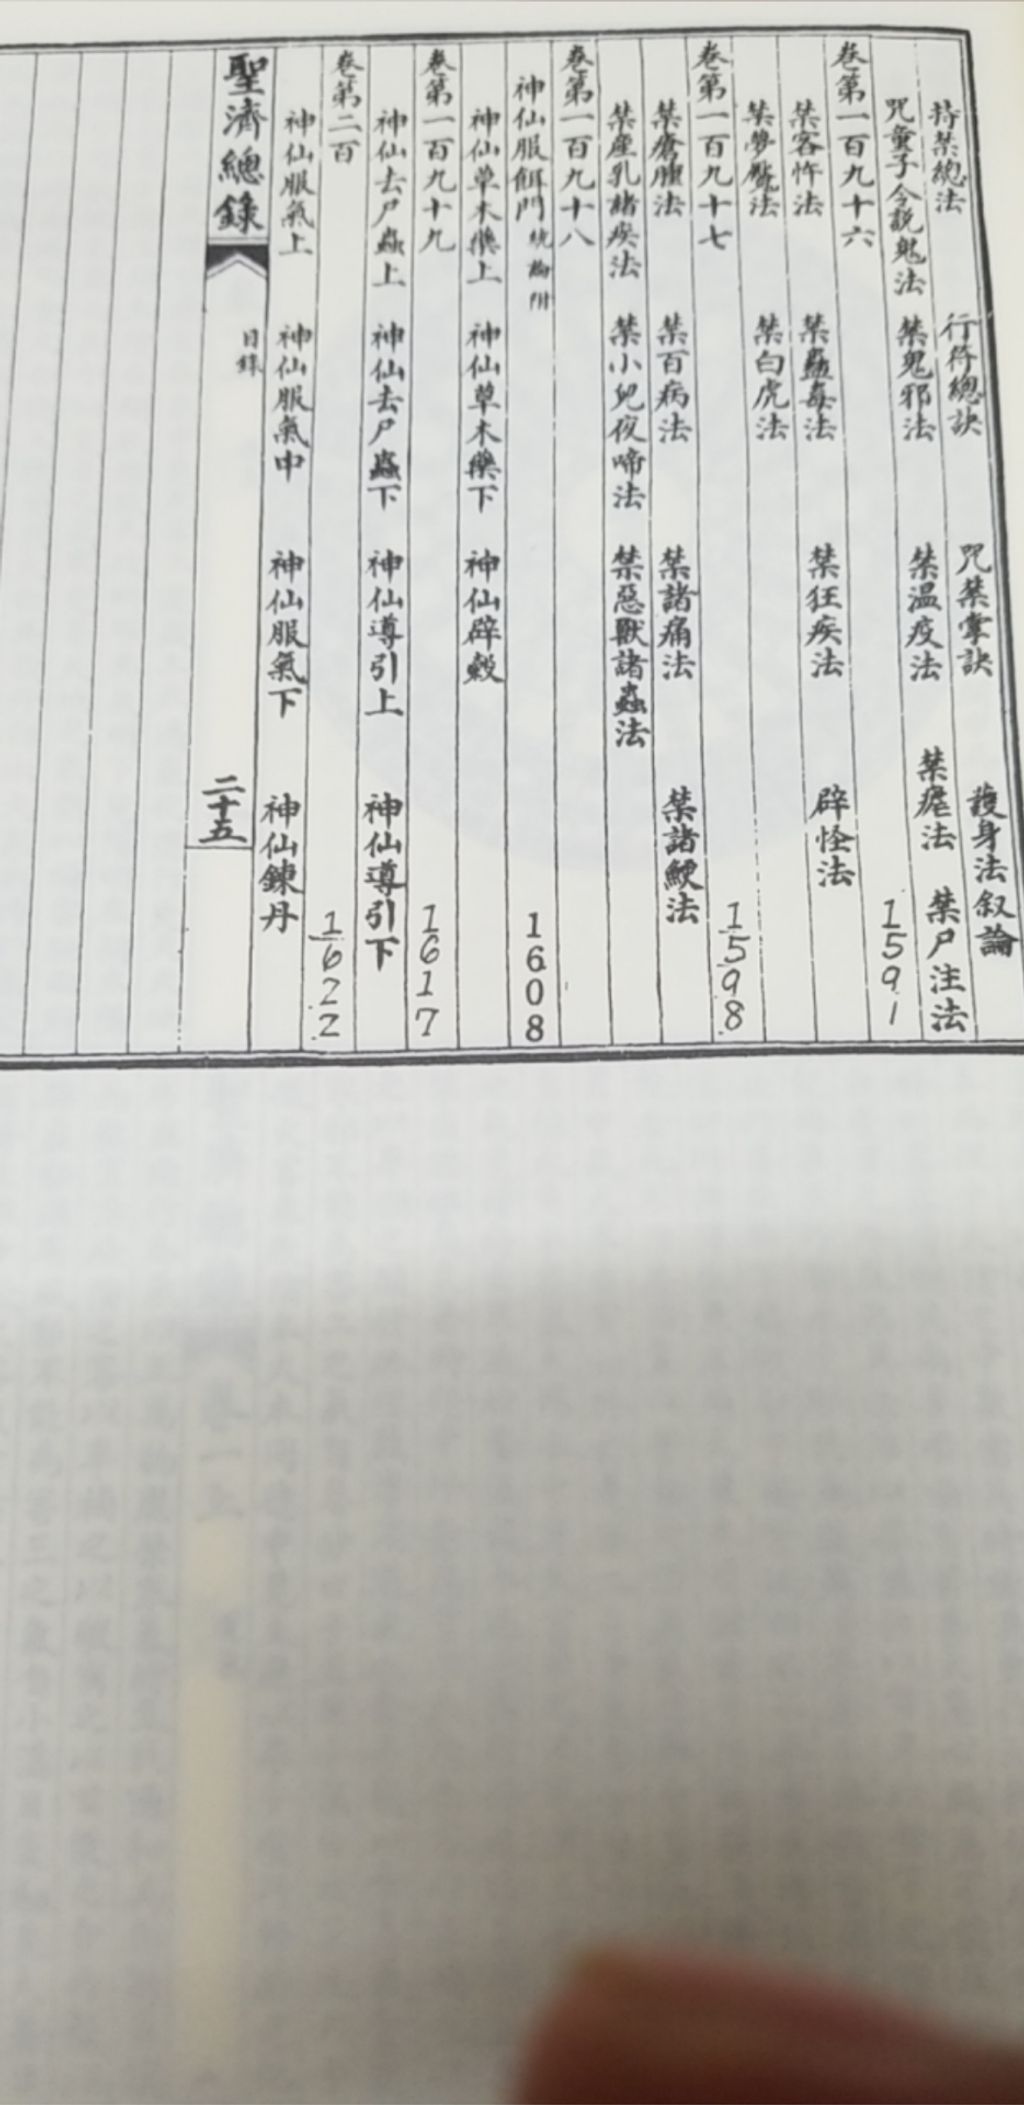 持禁總法 行符總訣 咒禁掌訣 護身法叙論
咒童子令說鬼法 禁鬼邪法 禁溫疫法 禁瘧法 禁尸注法
卷第一百九十六 1591
禁客忤法 禁蠱毒法 禁狂疾法 辟怪法
禁夢魘法 禁白虎法
卷第一百九十七 1598
禁瘡腫法 禁百病法 禁諸痛法 禁諸鯁法
禁產乳諸疾法 禁小兒夜啼法 禁惡獸諸蟲法
卷第一百九十八
神仙服餌門 統論附 1608
神仙草木藥上 神仙草木藥下 神仙辟穀
卷第一百九十九 1617
神仙去尸蟲上 神仙去尸蟲下 神仙導引上 神仙導引下
卷第二百 1622
神仙服氣上 神仙服氣中 神仙服氣下 神仙鍊丹
聖濟總錄 目錄 二十五